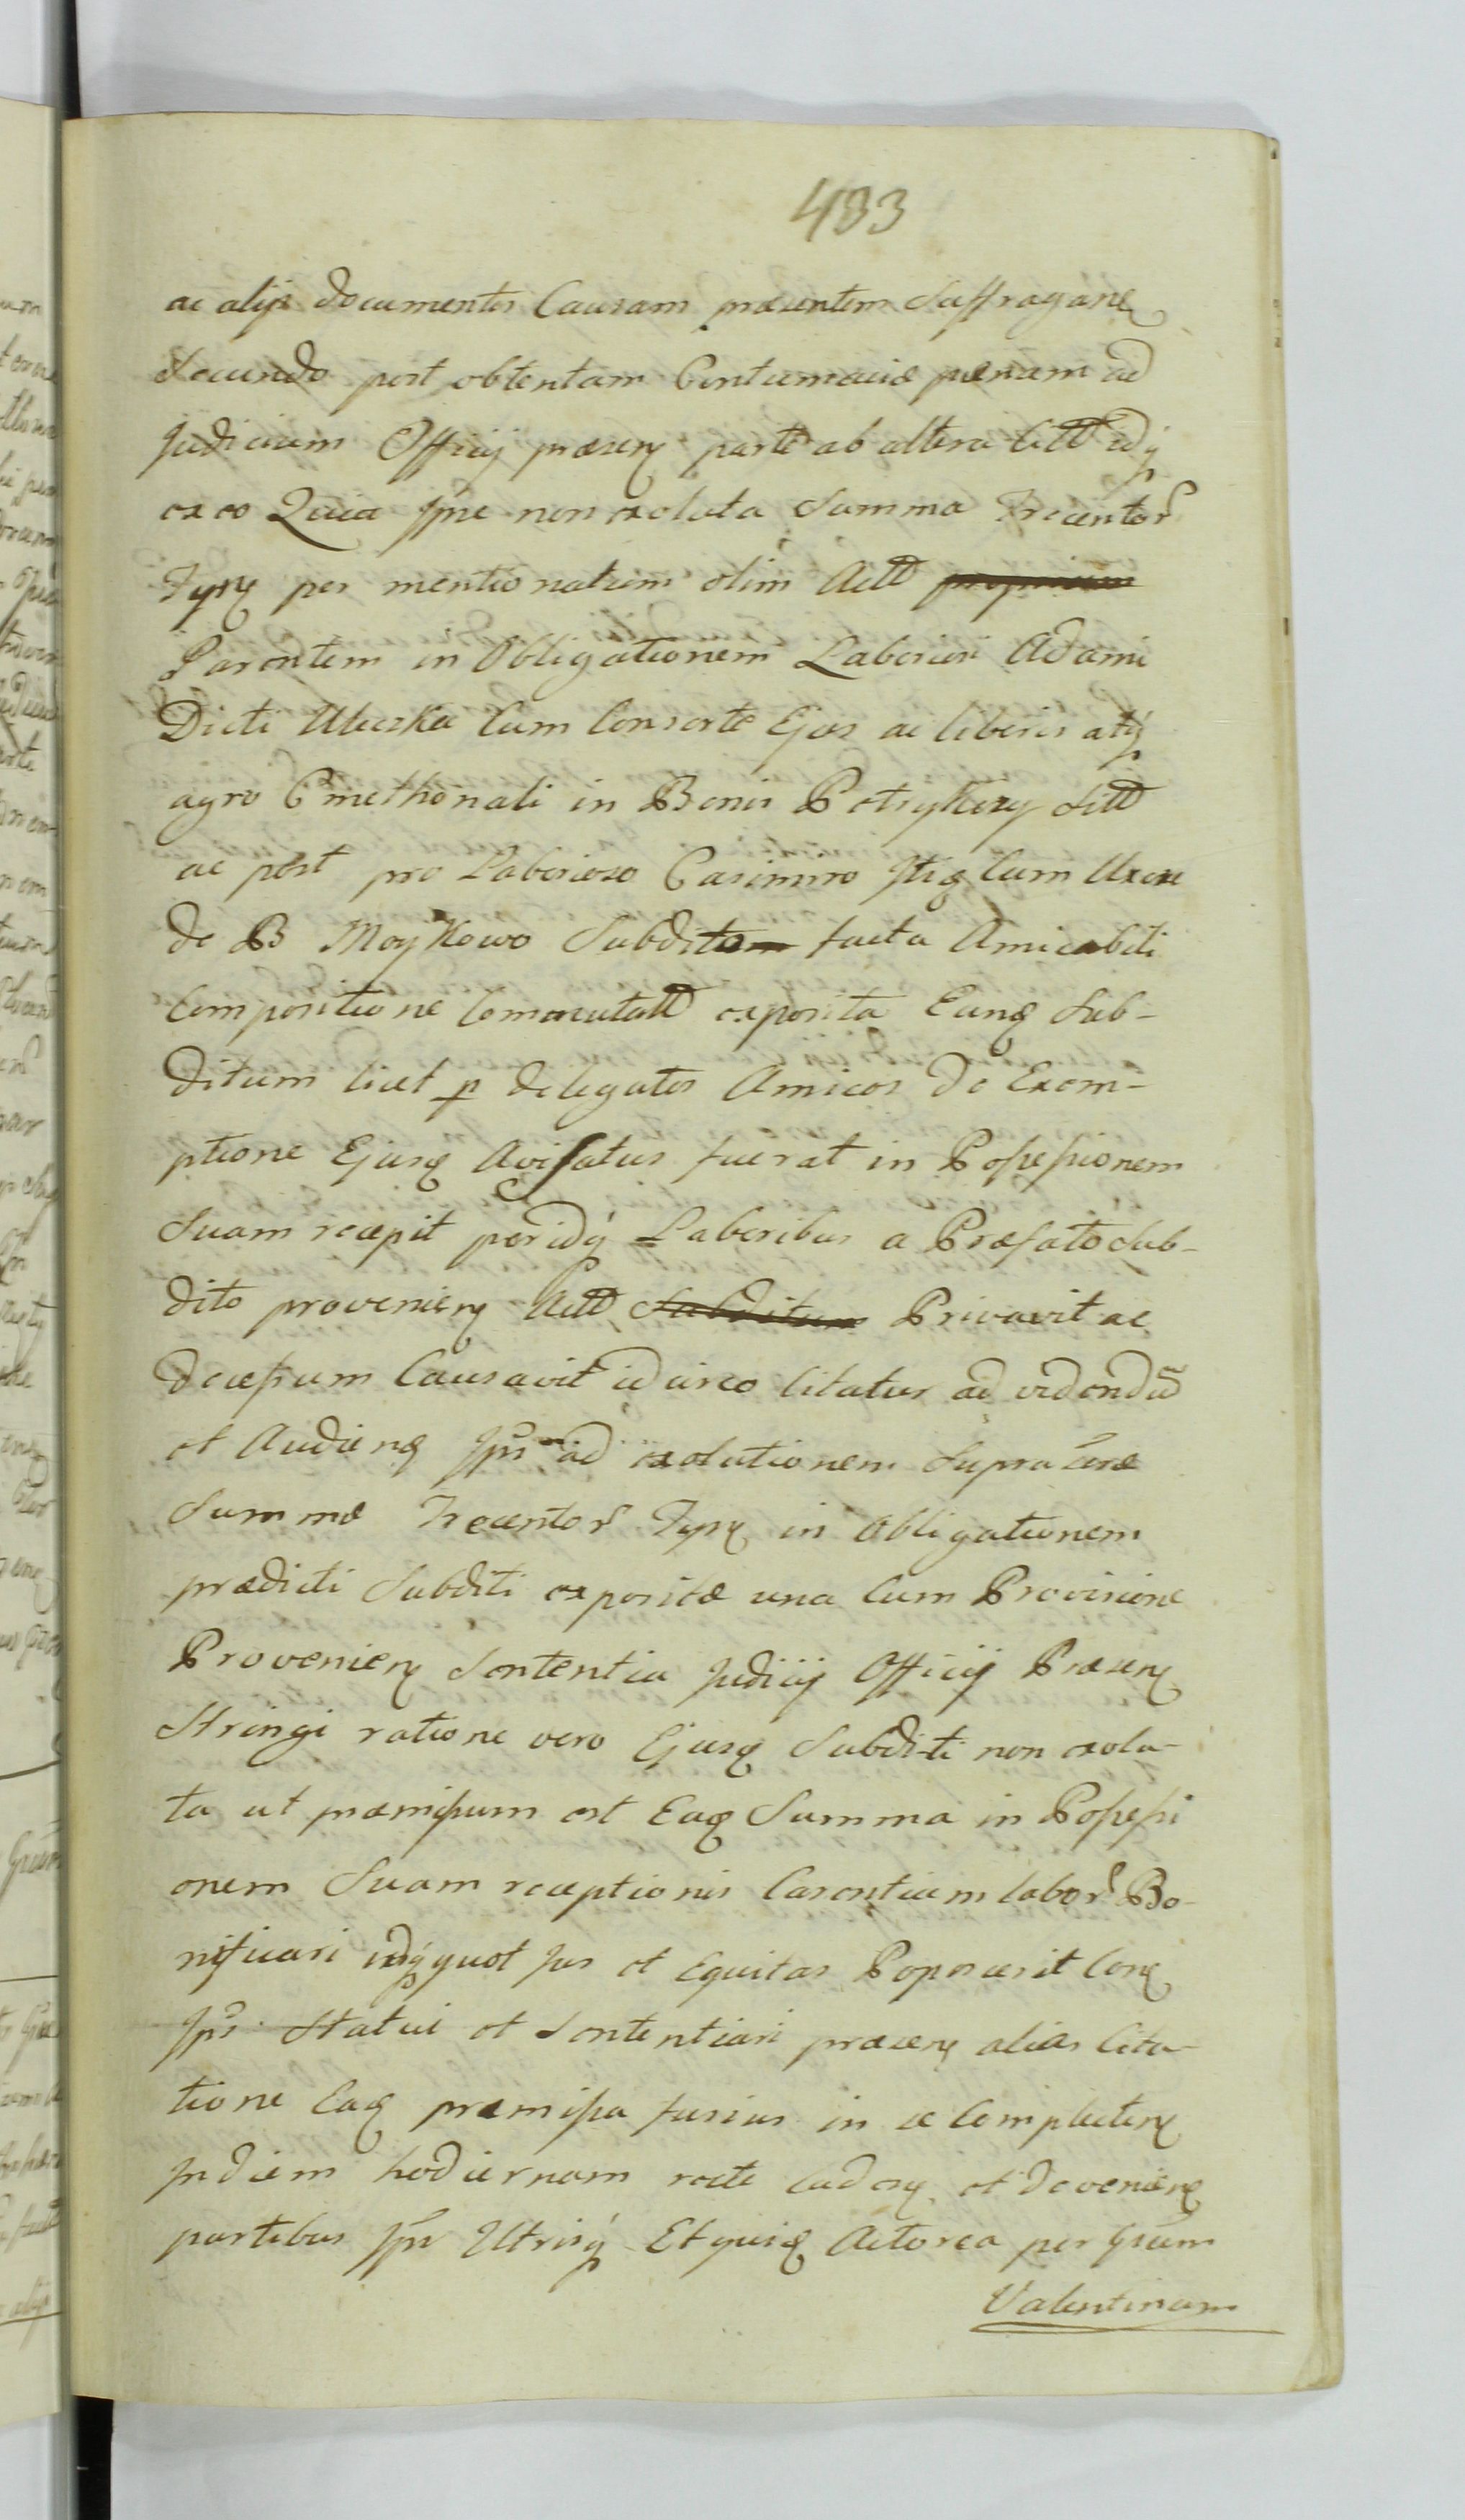 483
ac alijs documentis Causam præsentem Suffraganę
Secundo post obtentam Contumaciæ pænam ad
Judicium Officij præsenę parte ab altera Citt idq
ex eo Quia Jpse non exoluta Summa Trecentor
Tynę per mentionatum olim Actt proprium
Parentem in Obligationem Laboriosi Adami
Dicti Uluszka Cum Consorte Ejus ac liberis atq
agro Cmethonali in Bonis Potrykozy Sitt
ac post pro Laborioso Casimiro Cum Uxore
de B Moykowo Subditom facta Amicabili
Compositione Commutatt exposita Eunđ Sub-
ditum licet p delegatos Amicos de Exem-
ptione Ejusđ Avisatus fuerat in Possessionem
Suam recepit peridq Laboribus a Præfato Sub-
dito provenienę Actt Subditum Privavit ac
Decessum Causavit idcirco Citatur ad videndū
et Audienđ Jpm ad exolutionem Supra
Summæ Trecentor Tynę in Obligationem
prædicti Subditi expositæ una Cum Provisione
Provenienę Sententia Judicij Officij Præsenę
Stringi ratione vero Ejusđ Subditi non exolu-
ta ut præmissum est Eađ Summa in Possessi
onem Suam receptionis Carentiam labor Bo-
nificari idq quot Jus et Equitas Poposcerit Conę
Jps Statui et Sententiari præsenę alias Cita-
tione Eađ præmissa fusius in se Complectenę
Jn diem hodiernam recte Cadenę et Devenienę
partibus Jps Utrisq Et quiđ Actorea per Gsum
Valentinum